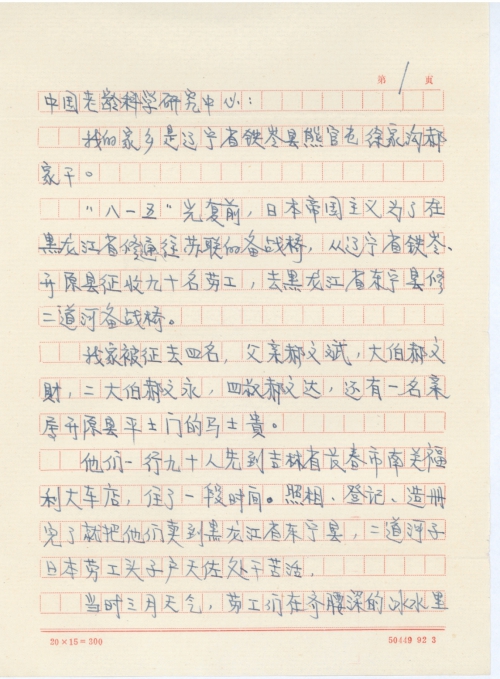 第 1 页
中国老龄科学研究中心：
我的家乡是辽宁省铁岭县熊官屯徐家沟郝
家干。
"八一五"光复前，日本帝国主义为了在
黑龙江省修通往苏联的备战桥，从辽宁省铁岭、
开原县征收九十名劳工，去黑龙江省东宁县修
二道河备战桥。
我家被征去四名，父亲郝文斌，大伯郝文
财，二大伯郝文永，四叔郝文达，还有一名亲
属开原县平土门的马士贵。
他们一行九十人先到吉林省长春市南关福
利大车店，住了一段时间。照相、登记、造册
完了就把他们卖到黑龙江省东宁县，二道河子
日本劳工头子户天佐处干苦活，
当时三月天气，劳工们在齐腰深的冰水里
20×15=300
50449 92 3